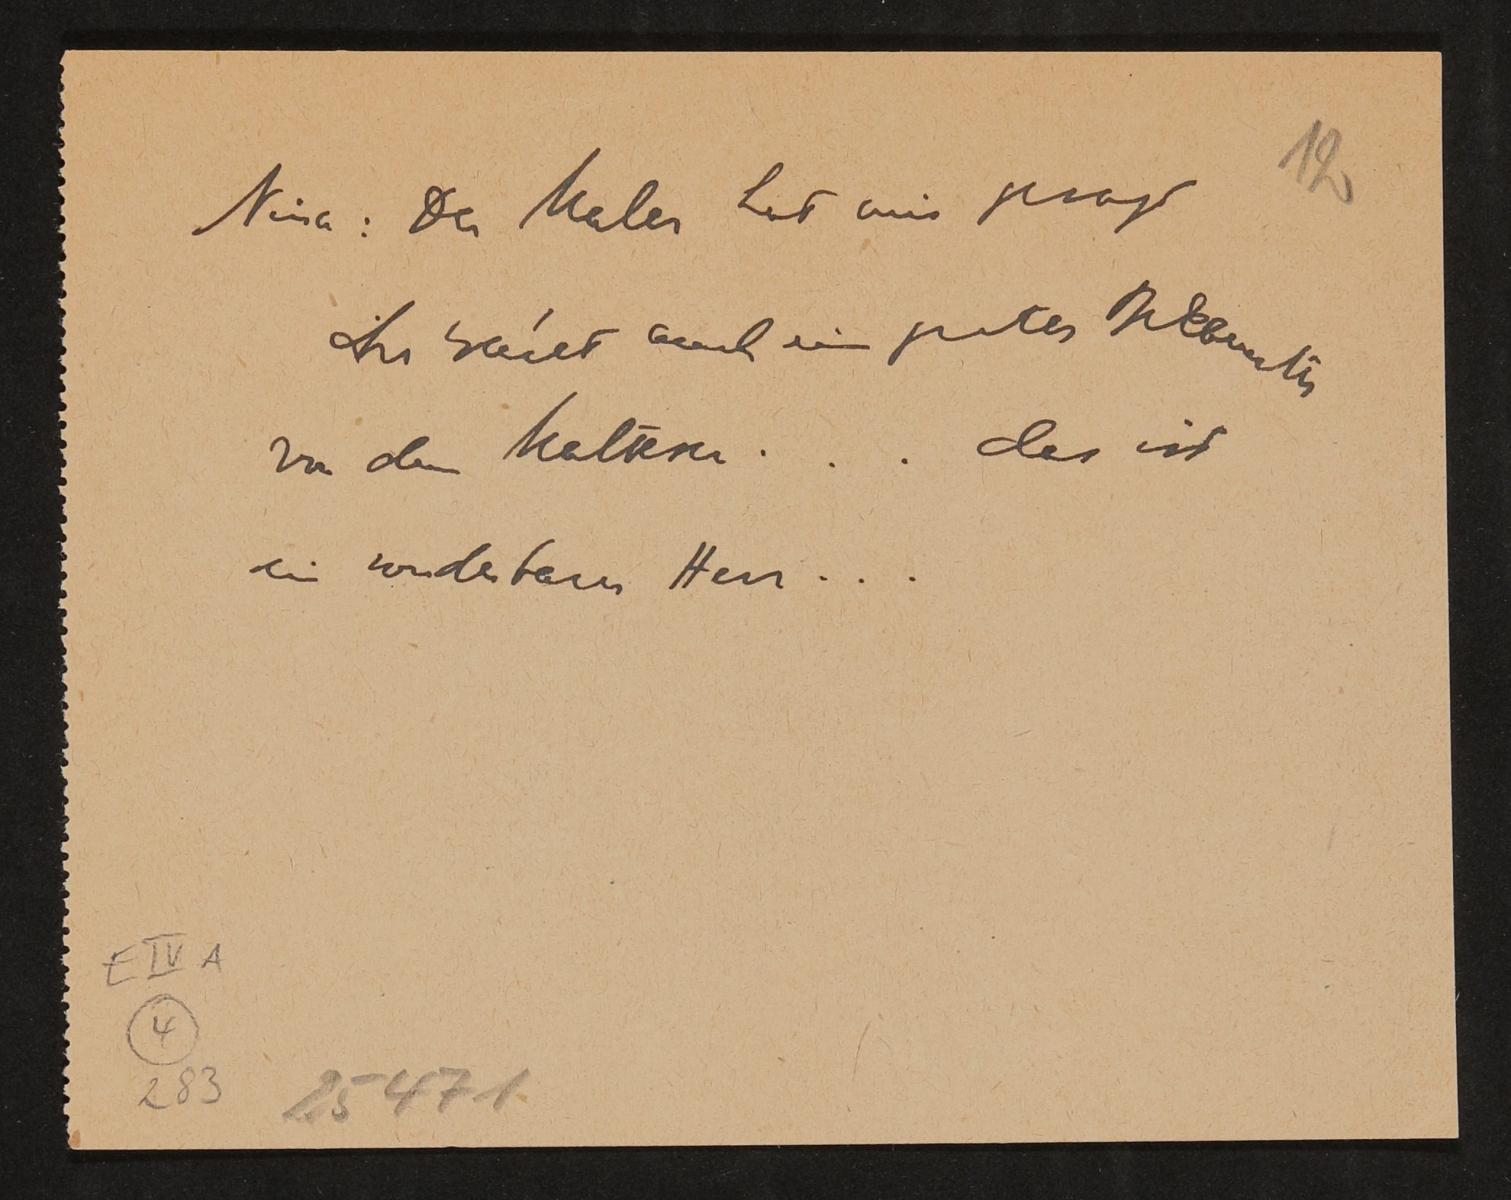 12
Nina: Der Maler hat mir gesagt
Ihr wäret auch ein guter Bekannter
von dem Malteser . . . das ist
ein sonderbarer Herr . . .
E IV A
4
283
25471